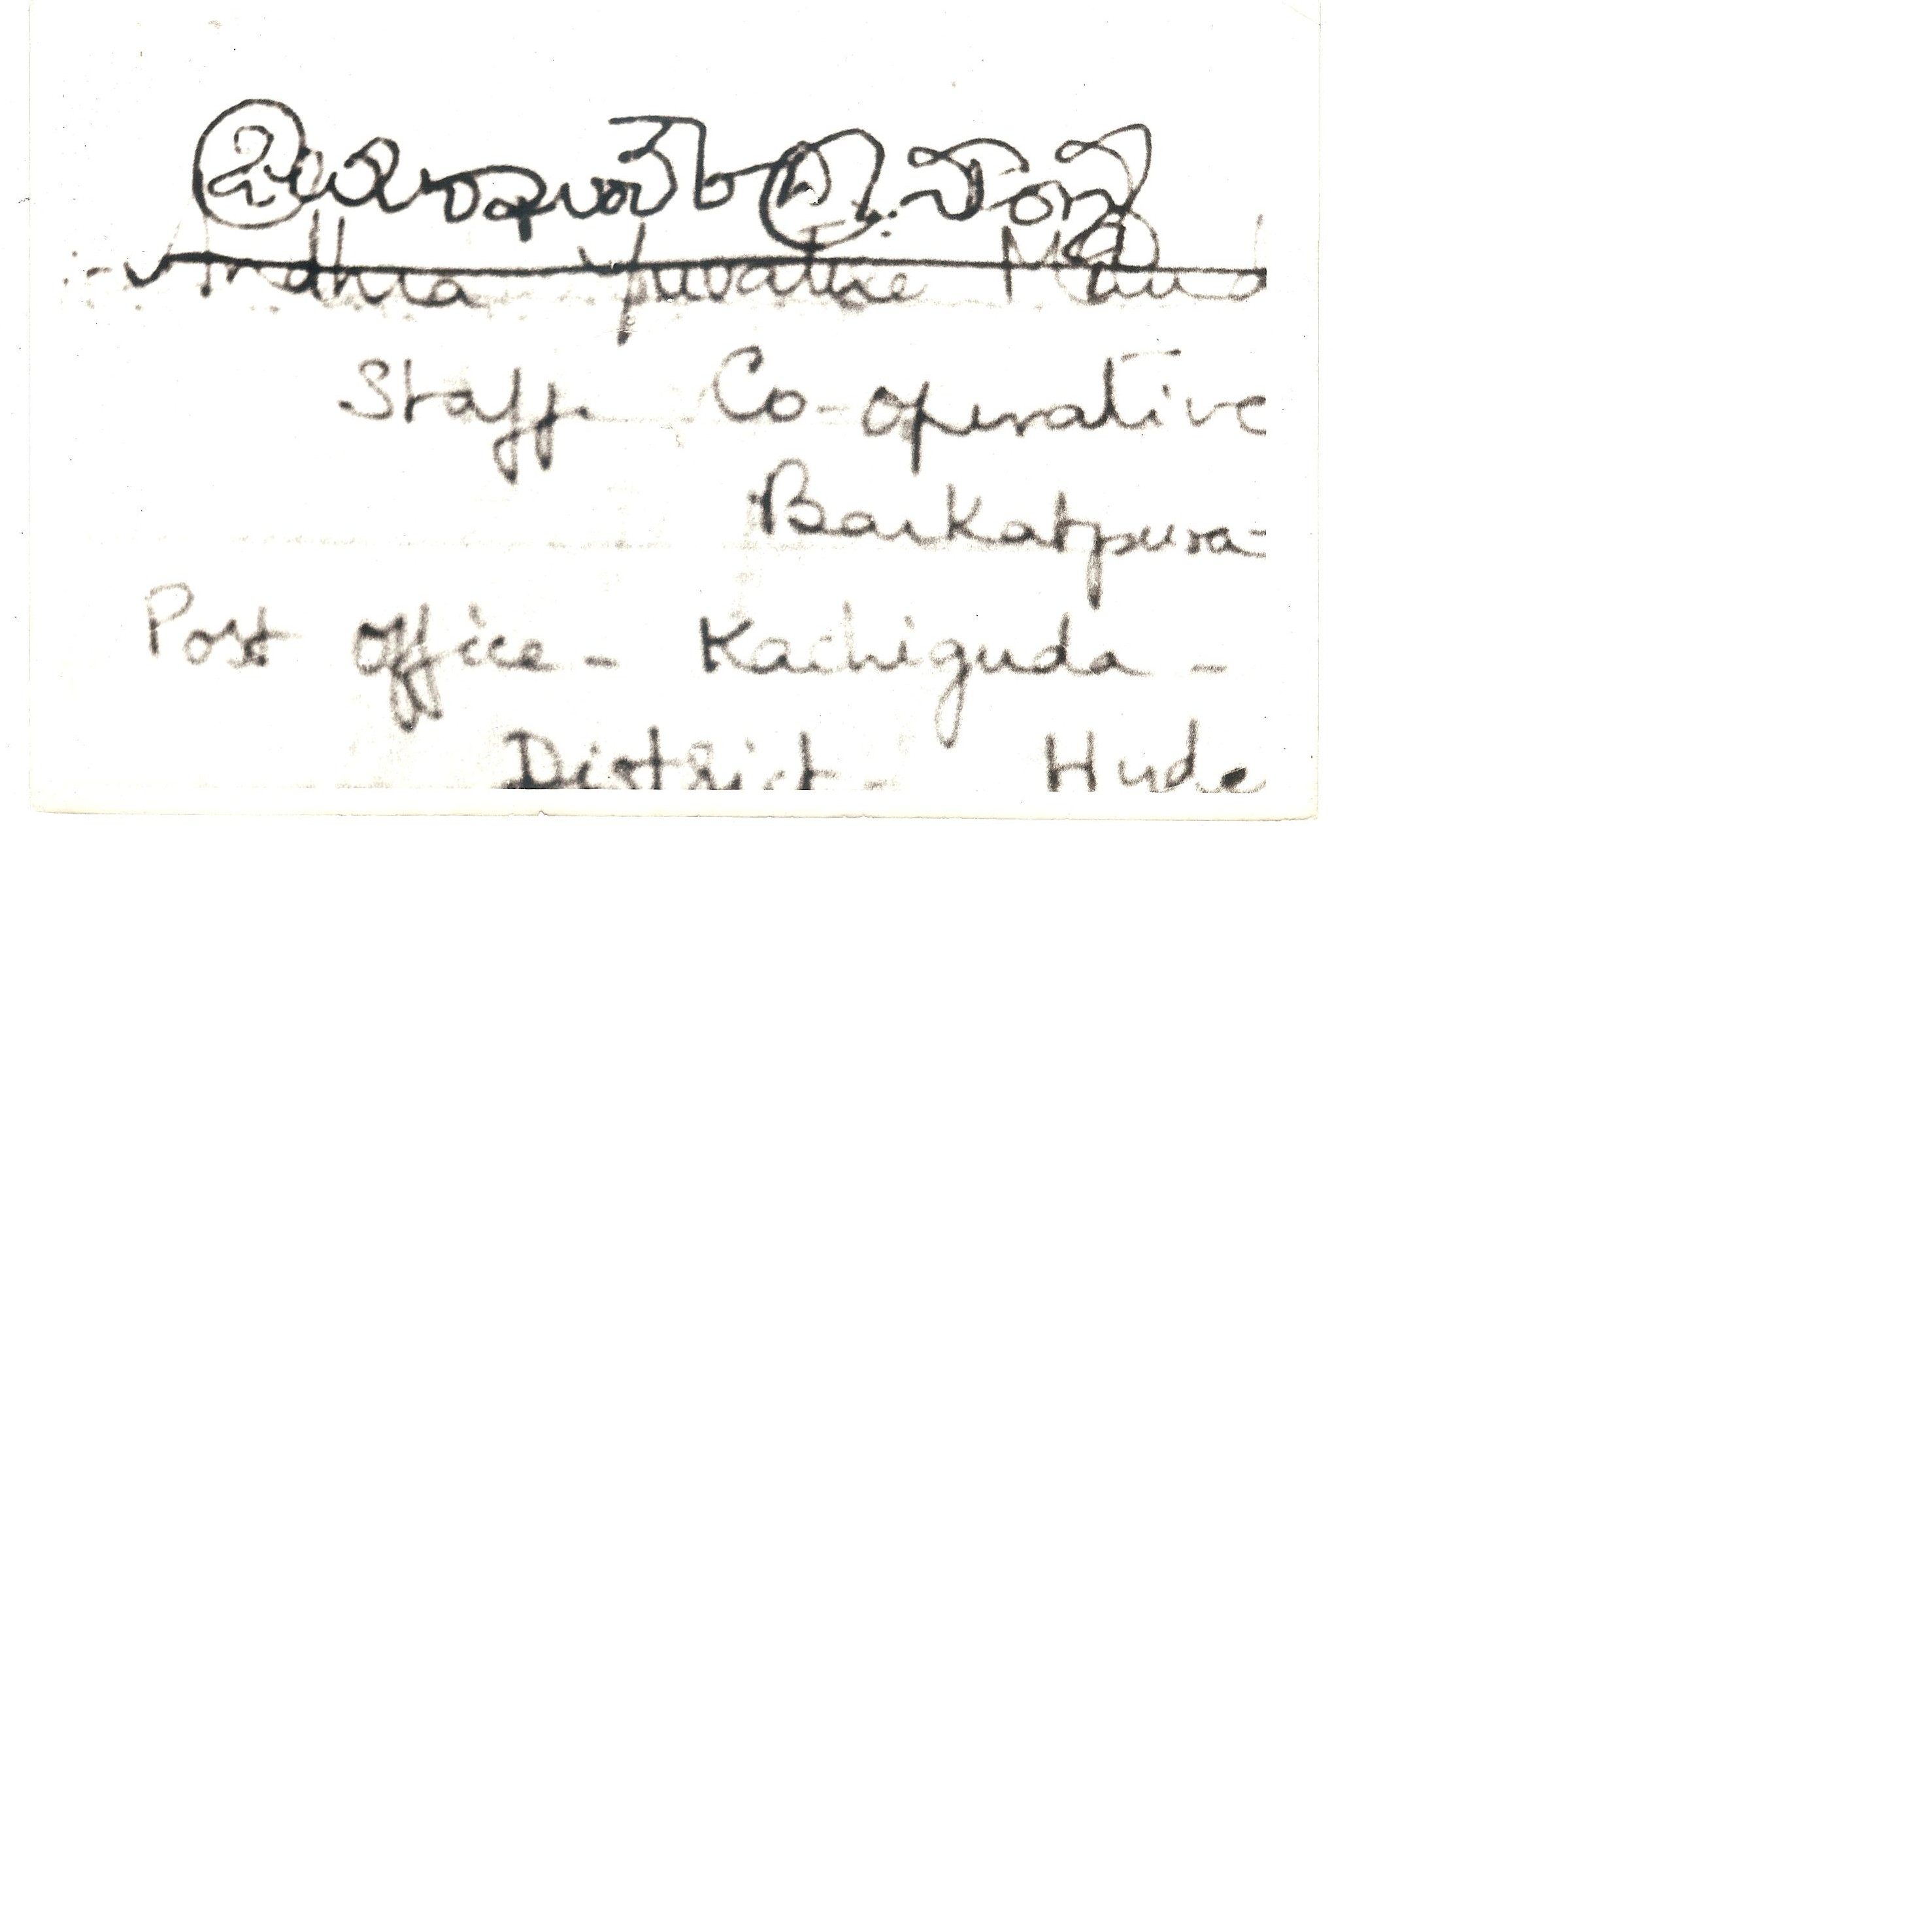 Andhra Yuvathi Mand
Staff Co-operative
Barkatpura-
Post Office - Kachiguda -
District - Hyde